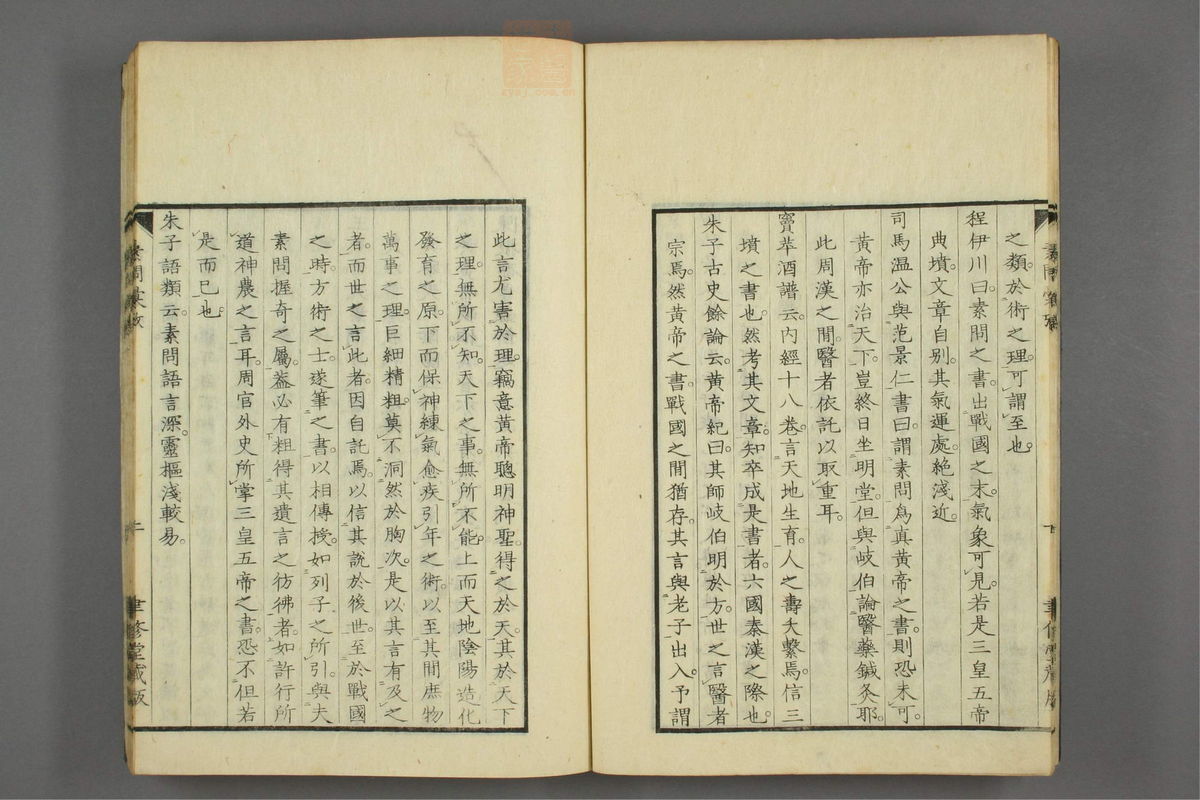 之類。於術之理。可謂至也。
程伊川曰。素問之書。出戰國之末。氣象可見。若是三皇五帝
典墳。文章自別。其氣運處。絕淺近。
司馬溫公與范景仁書曰。謂素問爲眞黃帝之書。則恐未可。
黃帝亦治天下。豈終日坐明堂。但與岐伯論醫藥鍼灸耶。
此周漢之閒。醫者依託以取重耳。
竇苹酒譜云。內經十八卷。言天地生育。人之壽夭繫焉。信三
墳之書也。然考其文章。知卒成是書者。六國秦漢之際也。
朱子古史餘論云。黃帝紀曰。其師岐伯明於方。世之言醫者
宗焉。然黃帝之書。戰國之閒猶存。其言與老子出入。予謂
此言尤害於理。竊意黃帝聰明神聖。得之於天。其於天下
之理。無所不知。天下之事。無所不能。上而天地陰陽造化
發育之原。下而保神練氣愈疾引年之術。以至其間庶物
萬事之理。巨細精粗。莫不洞然於胸次。是以其言有及之
者。而世之言此者。因自託焉。以信其說於後世。至於戰國
之時。方術之士。遂筆之書。以相傳授。如列子之所引。與夫
素問握奇之屬。蓋必有粗得其遺言之彷彿者。如許行所
道神農之言耳。周官外史所掌三皇五帝之書。恐不但若
是而已也。
朱子語類云。素問語言深。靈樞淺較易。
二
聿修堂藏版